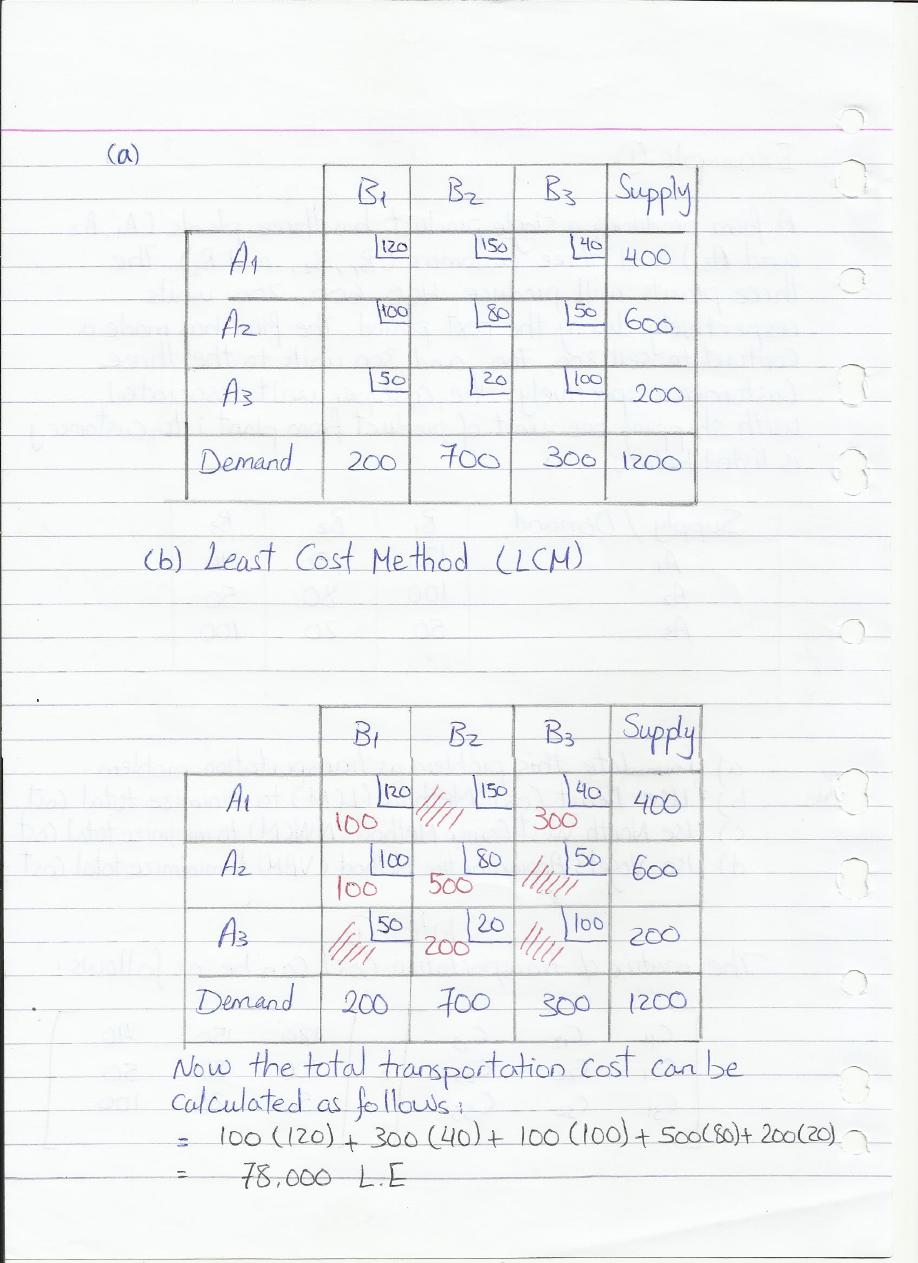 (a)
B1 B2 B3 Supply
A1 120 150 40 400
A2 100 80 50 600
A3 50 20 100 200
Demand 200 700 300 1200
(b) Least Cost Method (LCM)
B1 B2 B3 Supply
A1 120 150 40 400
100 300
A2 100 80 50 600
100 500
A3 50 20 100 200
200
Demand 200 700 300 1200
Now the total transportation cost can be
calculated as follows:
= 100 (120) + 300 (40) + 100 (100) + 500(80) + 200(20)
= 78,000 L.E